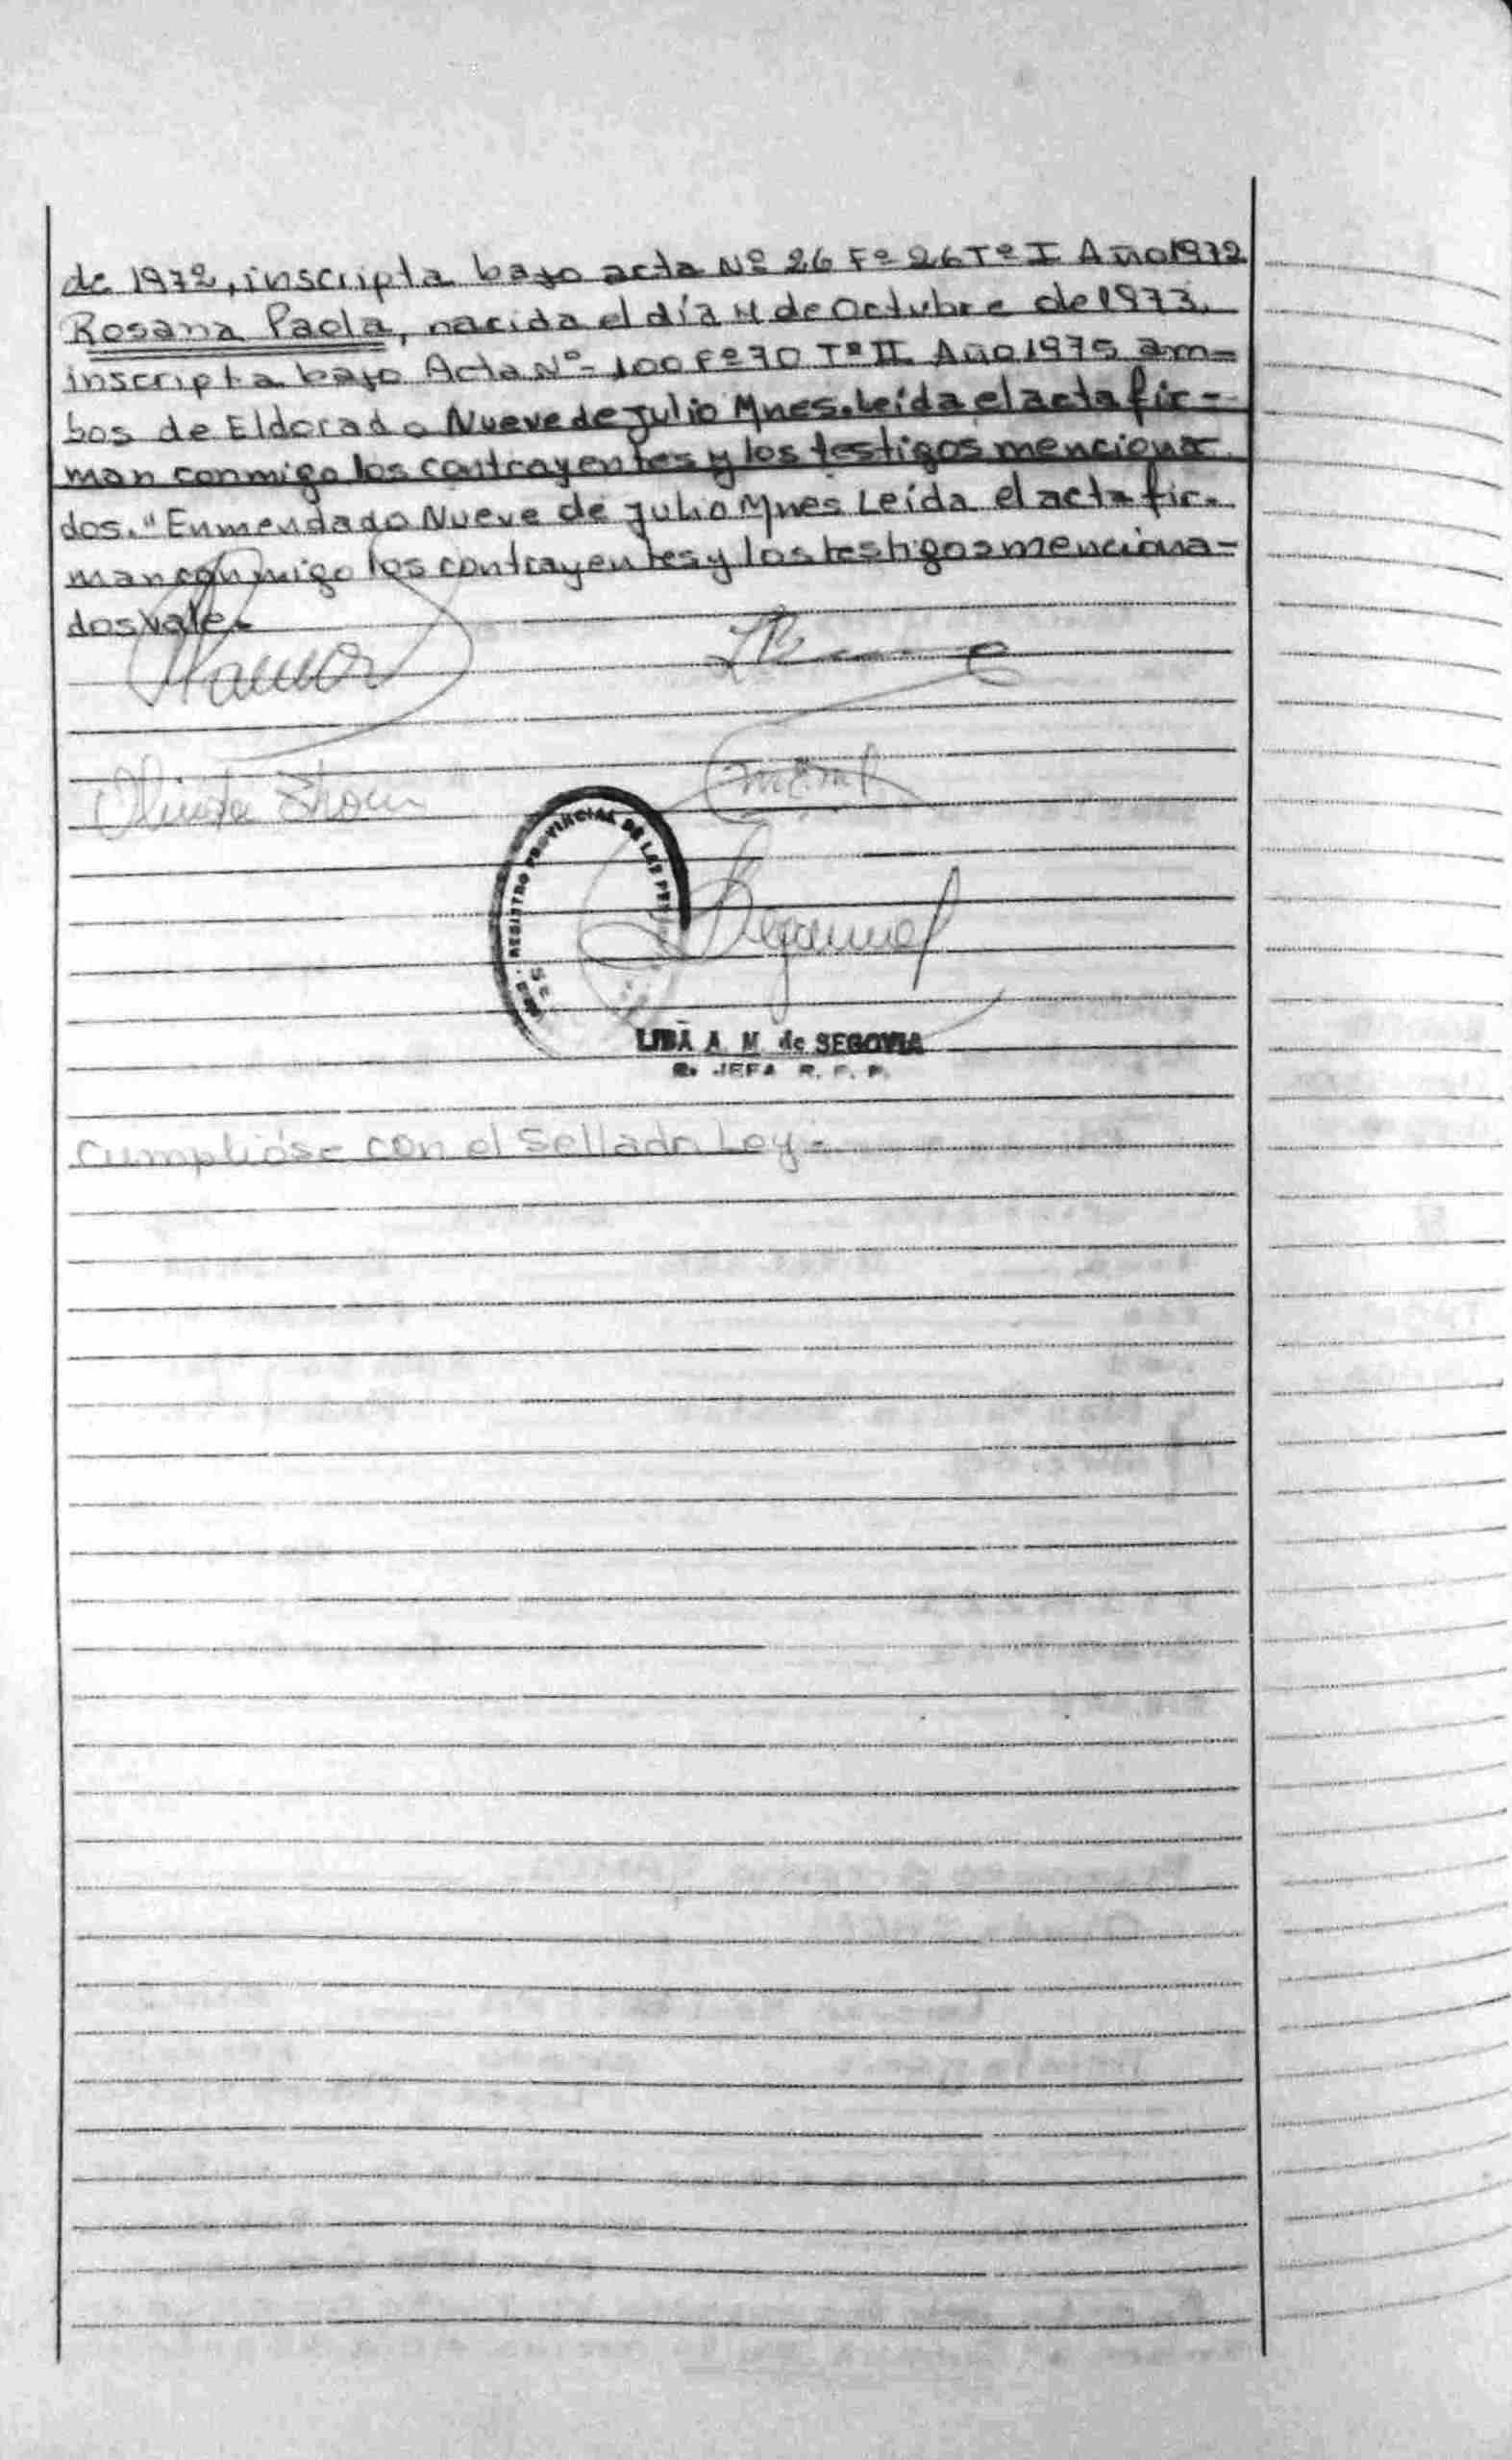 de 1972, inscripta bajo acta Nº 26 Fº 26 Tº I Año 1972
Rosana Paola, nacida el día 4 de Octubre de 1973,
inscripta bajo Acta Nº- 100 Fº 70 Tº II Año 1975 am=
bos de Eldorado Nueve de Julio Mnes. Leída el acta fir-
man conmigo los contrayentes y los testigos menciona
dos. "Enmendado Nueve de Julio Mnes Leída el acta fir-
man conmigo los contrayentes y los testigos menciona-
dos Vale.
REGISTRO PROVINCIAL DE LAS
LIBA A. M de SEGOVIA
JEFA R. P. P.
Cumplióse con el Sellado Ley=